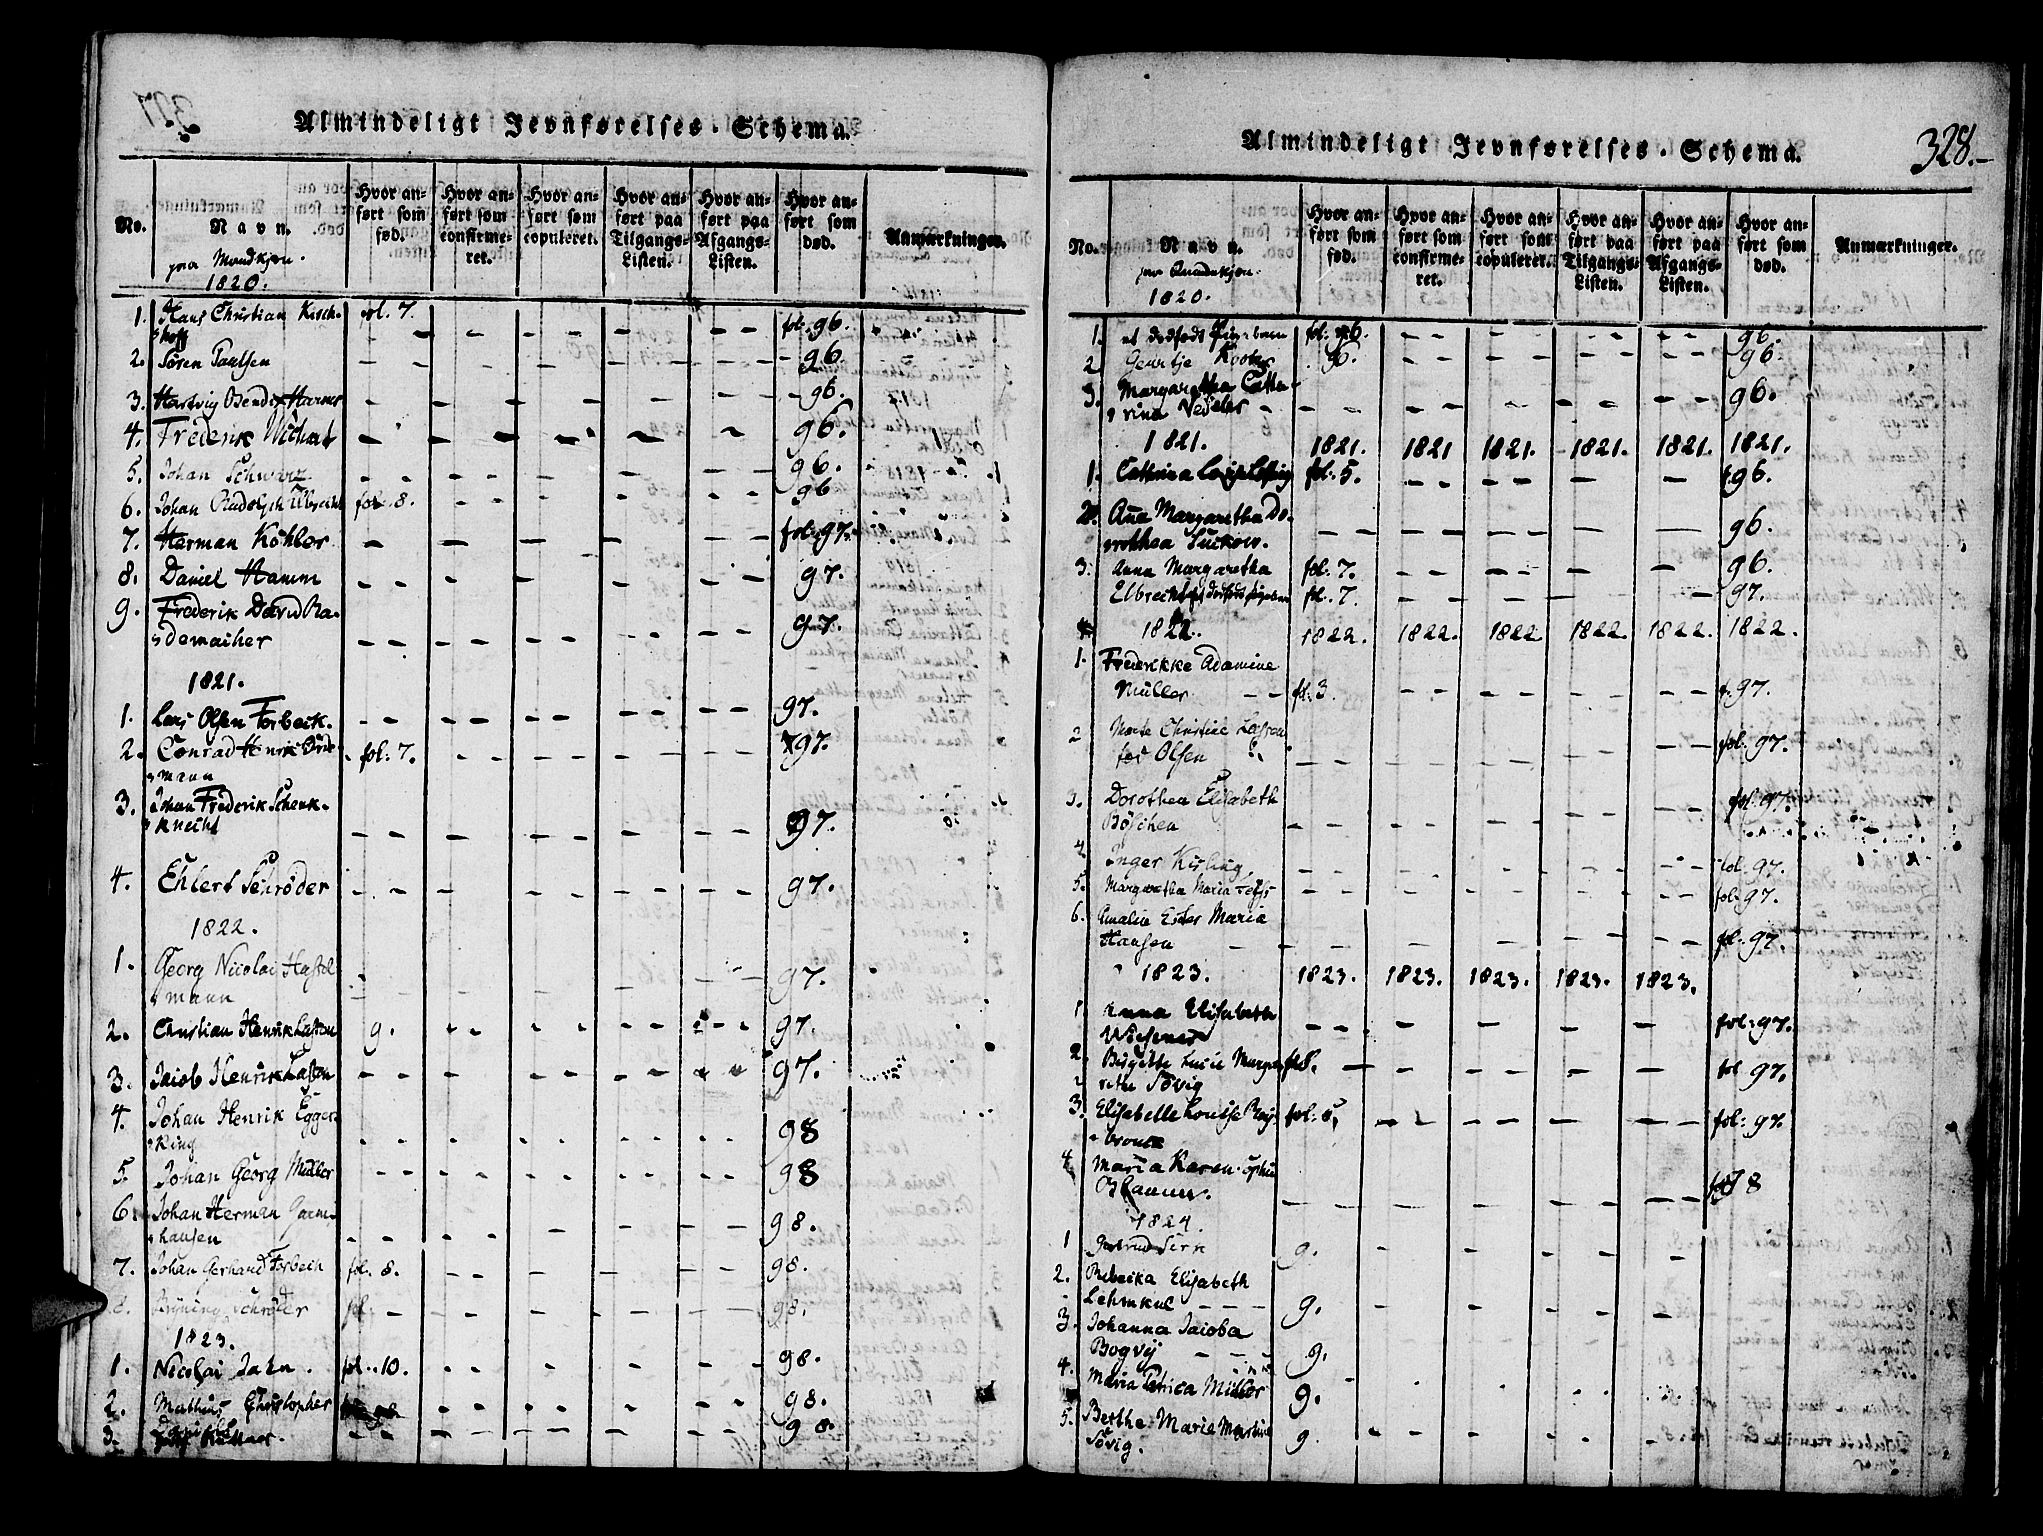 Almindeligt Jevnførelses-Schema.
No.
Navn.
Hvor anført som fød.
Hvor anført som confirmeret.
Hvor anført som copuleret.
Hvor anført paa Tilgangs-Listen.
Hvor anført paa Afgangs-Listen.
Hvor anført som død.
Anmærkninger.
paa Mandkjøn.
1820.
1. Hans Christian Kirch- fol. 7. fol. 96.
hoff
2. Søren Paulsen 96.
3. Hartvig Bendix Harms 96.
4. Frederik Wichat 96.
5. Johan Schwarz 96.
6. Johan Rudolph Elbrecht fol. 8. 96
7. Herman Köhler fol. 97.
8. Daniel Hamm 97.
9. Frederik David Ra- 97.
demacher
1821.
1. Lars Olsen Forbeck. 97.
2. Conrad Henrik fol. 7. 97.
mann
3. Johan Frederik Schenk- 97.
knecht
4. Ehlert Schrøder 97.
1822.
1. Georg Nicolai Hastel 97.
mann
2. Christian Henrik Lassen 9. 97.
3. Jacob Henrik Lassen 97.
4. Johan Henrik Egger 98
King
5. Johan Georg Müller 98
6. Johan Herman Garm- 98.
hausen
7. Johan Gerhard Forbech fol. 8. 98.
8. Schrøder fol. 98.
1823.
1. Nicolai Jahn. fol. 10. 98.
2. Mathias Christopher 98.
3. 98
Almindeligt Jevnførelses-Schema.
328.
No.
Navn.
Hvor anført som fød.
Hvor anført som confirmeret.
Hvor anført som copuleret.
Hvor anført paa Tilgangs-Listen.
Hvor anført paa Afgangs-Listen.
Hvor anført som død.
Anmærkninger.
paa Qvindekjøn.
1820.
1. et dødfødt Pigebarn fol. 96. 96.
2 Geurtje Koota 96. 96.
3. Margaretha Catha- 96.
rina Vesseler
1821. 1821. 1821 1821. 1821. 1821. 1821.
1. Cathrina fol. 5. 96.
2. Ana Margaretha Do- 96.
rothea Suckow.
3. Anna Margaretha fol. 7. 96.
Elbrecht fol. 7. 97.
1822. 1822. 1822. 1822 1822. 1822. 1822.
1. Frederikke Adamine
Müller fol. 3. 97.
2 Marte Christine Lassen fol. 97.
fød Olsen
3. Dorothea Elisabeth fol. 97.
Böschen
4. Inger Kisling fol. 97.
5. Margaretha Maria fol. 97.
6. Amalia Ester Maria
Hansen fol. 97.
1823. 1823. 1823. 1823. 1823. 1823.
1. Anna Elisabeth fol: 97.
2. Birgitte Lucie Margre fol. 97.
rethe Søvig
3. Elisabeth Louise fol. 5, fol: 97.
4 Maria Karen 8
1824.
1 Gertrud Sirk 9.
2. Rebecka Elisabeth
Lehmkul 9.
3. Johanna Jacoba
Bogvij 9.
4. Maria Müller 9.
5. Berthe Marie Martine 9.
Søvig.